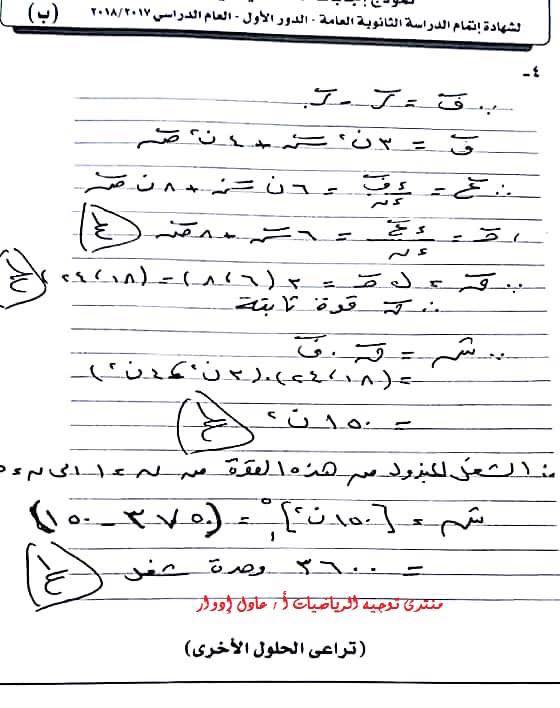 لشهادة إتمام الدراسة الثانوية العامة - الدور الأول - العام الدراسي ٢٠١٨/٢٠١٧
(ب)
٤-
∵ ف = ر - ر.
ف = ٣ن٢ س + ٤ن٢ ص
∴ ع = ءف/ءن = ٦ن س + ٨ن ص
، جـ = ءع/ءن = ٦ س + ٨ ص
∵ ق = ك جـ = ٣(٨،٦) = (٢٤،١٨)
∴ ق قوة ثابتة
∵ ش = ق . ف
= (٢٤،١٨).(٣ن٢، ٤ن٢)
= ١٥٠ ن٢
الشغل المبذول من هذه القوة من ن = ١ الى ن = ٥
ش = [١٥٠ن٢]٥١ = (٣٧٥٠ - ١٥٠)
= ٣٦٠٠ وحدة شغل
منتدى توجيه الرياضيات أ/ عادل إدوار
(تراعى الحلول الأخرى)